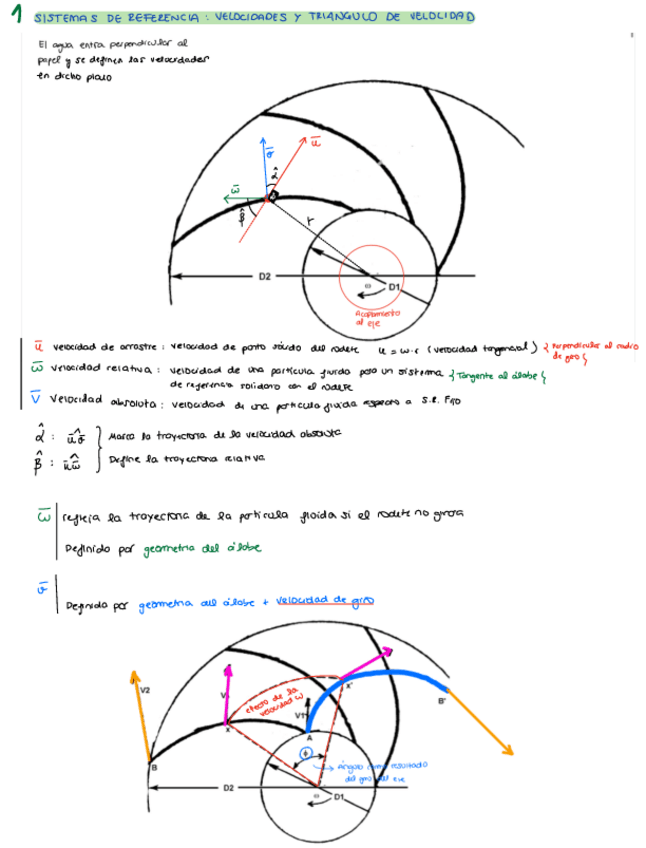 1 SISTEMAS DE REFERENCIA: VELOCIDADES Y TRIÁNGULO DE VELOCIDAD
El agua entra perpendicular al
papel y se definen las velocidades
en dicho plano
v̄
ū
α̂
w̄
β̂
r
D2
ω
D1
Acoplamiento
al eje
ū velocidad de arrastre: velocidad de punto sólido del rodete u = ω·r (velocidad tangencial) {Perpendicular al radio
de giro}
w̄ velocidad relativa: velocidad de una partícula fluida para un sistema {Tangente al álabe}
de referencia solidario con el rodete
V̄ velocidad absoluta: velocidad de una partícula fluida respecto a S.R. Fijo
α̂ : ūv̄ Marca la trayectoria de la velocidad absoluta
β̂ : ūw̄ Define la trayectoria relativa
w̄ refleja la trayectoria de la partícula fluida si el rodete no girara
Definido por geometría del álabe
v̄
Definida por geometría del álabe + velocidad de giro
V2
V
efecto de la
velocidad ω
V1
x
x'
A
B
B'
ϕ
Ángulo como resultado
del giro del eje
D2
ω
D1